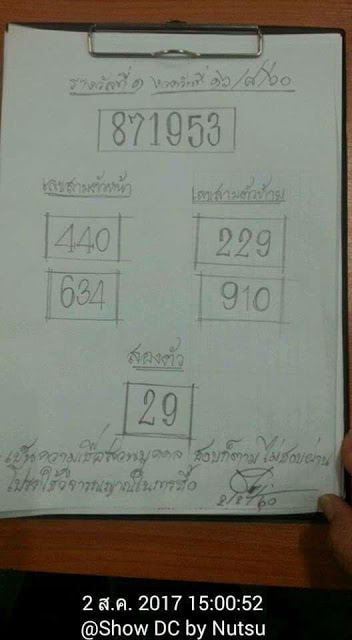 รางวัลที่ ๑ งวดวันที่ ๑๖/๘/๖๐
871953
เลขสามตัวหน้า
เลขสามตัวท้าย
440
229
634
910
สองตัว
29
เป็นความเชื่อส่วนบุคคล ชอบก็ตามไม่ชอบผ่าน
โปรดใช้วิจารณญาณในการซื้อ
2/8/60
2 ส.ค. 2017 15:00:52
@Show DC by Nutsu